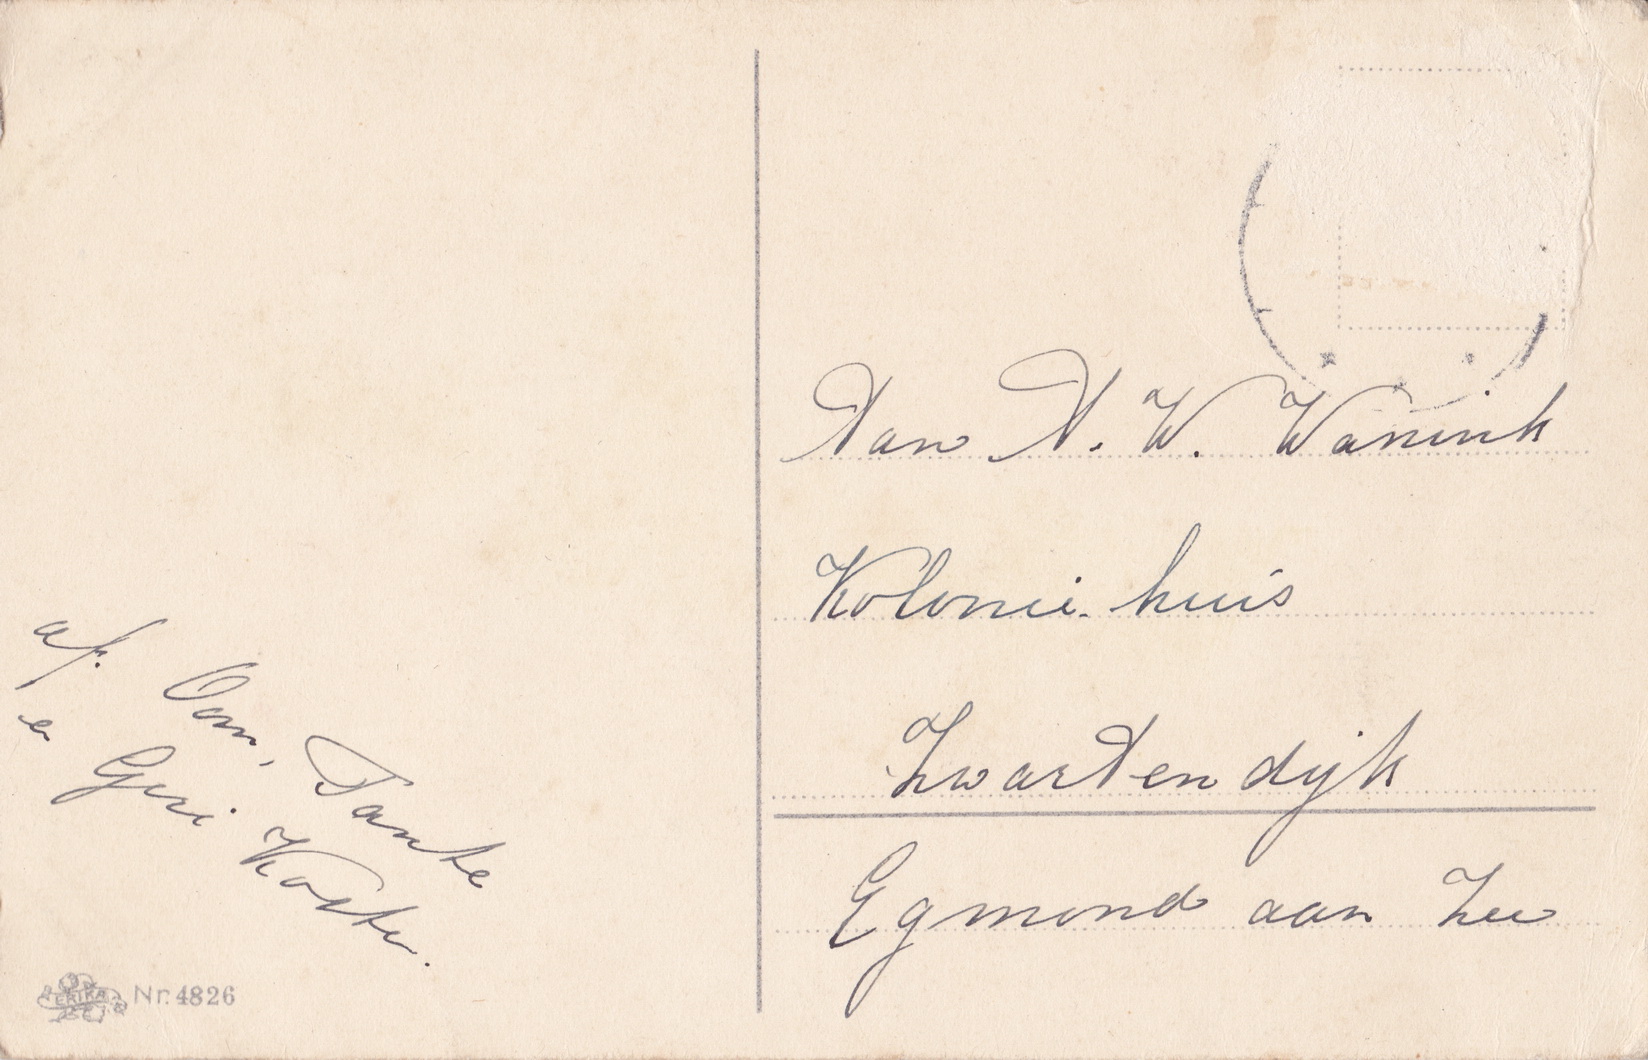 af. Oom, Tante
en Gerri Koster.
ERIKA
Nr. 4826
Aan A. W. Wanink
Kolonie-huis
Zwartendijk
Egmond aan Zee